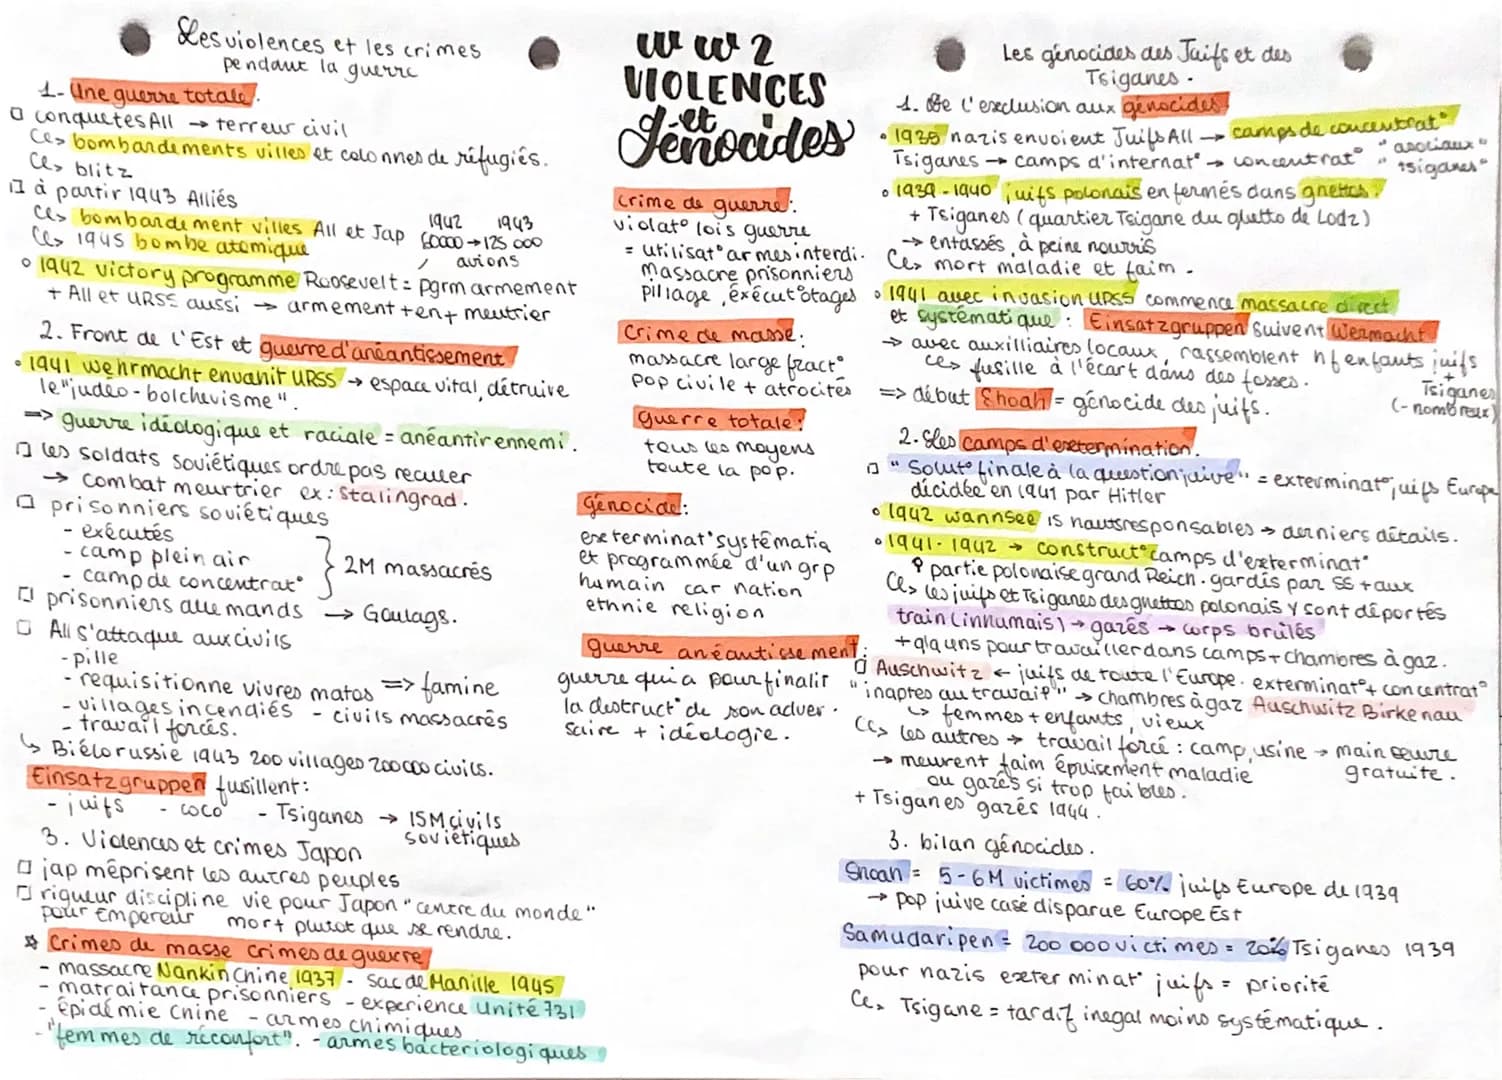 Les violences et les crimes
pendant la guerre
1- Une guerre totale.
conquetes All → terreur civil
↳ bombardements villes et colonnes de réfugiés.
↳ blitz
à partir 1943 Alliés
↳ bombardement villes All et Jap
↳ 1945 bombe atomique
1942 1943
60000 → 125 000
avions
1942 victory programme Roosevelt = pgrm armement
+ All et URSS aussi → armement + en + meutrier
2. Front de l'Est et guerre d'anéantissement
1941 wehrmacht envahit URSS → espace vital, détruire
le "judéo-bolchevisme".
=> guerre idéologique et raciale = anéantir ennemi.
les soldats soviétiques ordre pas reculer
→ combat meurtrier ex : Stalingrad.
prisonniers soviétiques
- exécutés
- camp plein air
- camp de concentrat°
} 2M massacrés
prisonniers allemands → Goulags.
All s'attaque aux civils
- pille
- requisitionne vivres matos => famine
- villages incendiés - civils massacrés
- travail forcés.
↳ Biélorussie 1943 200 villages 200 000 civils.
Einsatzgruppen fusillent :
- juifs - coco - Tsiganes → 15M civils
soviétiques
3. Violences et crimes Japon
jap méprisent les autres peuples
rigueur discipline vie pour Japon "centre du monde"
pour Empereur mort plutot que se rendre.
☆ Crimes de masse crimes de guerre
- massacre Nankin Chine 1937 - Sac de Manille 1945
- matraitance prisonniers - experience Unité 731
- Épidémie Chine - armes chimiques
- "femmes de réconfort". - armes bactériologiques
WW2
VIOLENCES
et
Génocides
Crime de guerre :
violat° lois guerre
= utilisat° armes interdi.
massacre prisonniers
pillage, éxécut° otages
Crime de masse :
massacre large fract°
pop civile + atrocités
guerre totale :
tous les moyens
toute la pop.
Génocide :
exterminat° systématiq
et programmée d'un grp
humain car nation
ethnie religion
guerre anéantissement :
guerre qui a pour finalit
la destruct° de son adver-
saire + idéologie.
Les génocides des Juifs et des
Tsiganes.
1. De l'exclusion aux génocides
1935 nazis envoient Juifs All → camps de concentrat°
Tsiganes → camps d'internat° → concentrat° "asociaux"
"tsiganes"
1939-1940 juifs polonais enfermés dans ghettos.
+ Tsiganes (quartier Tsigane du ghetto de Lodz)
→ entassés, à peine nourris
↳ mort maladie et faim.
1941 avec invasion URSS commence massacre direct
et systématique : Einsatzgruppen suivent Wermacht
→ avec auxilliaires locaux, rassemblent hf enfants juifs
↳ fusille à l'écart dans des fosses.
+
Tsiganes
(- nombreux)
=> début Shoah = génocide des juifs.
2. Les camps d'extermination.
"Solut° finale à la question juive" = exterminat° juifs Europe
décidée en 1941 par Hitler
1942 wannsee 15 hauts responsables → derniers détails.
1941-1942 → construct° camps d'exterminat°
partie polonaise grand Reich. gardés par SS + aux
↳ les juifs et Tsiganes des ghettos polonais y sont déportés
train (inhumais) → gazés → corps brûlés
+ qlq uns pour travailler dans camps + chambres à gaz.
Auschwitz ← juifs de toute l'Europe. exterminat° + concentrat°
"inaptes au travail" → chambres à gaz Auschwitz Birkenau
↳ femmes + enfants, vieux
↳ les autres → travail forcé : camp, usine → main œuvre
gratuite.
→ meurent faim épuisement maladie
ou gazés si trop faibles.
+ Tsiganes gazés 1944.
3. bilan génocides.
Shoah = 5-6M victimes = 60% juifs Europe de 1939
→ pop juive casé disparue Europe Est
Samudaripen = 200 000 victimes = 20% Tsiganes 1939
pour nazis exterminat° juifs = priorité
↳ Tsigane = tardif inegal moins systématique.